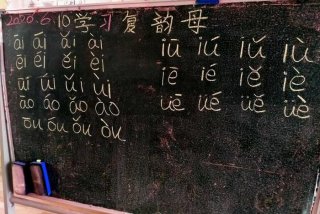 2020.6.10学习复韵母
āi ái ǎi ài
ēi éi ěi èi
ūi úi ǔi ùi
āo áo ǎo ào
ōu óu ǒu òu
iū iú iǔ iù
iē ié iě iè
üē üé üě üè